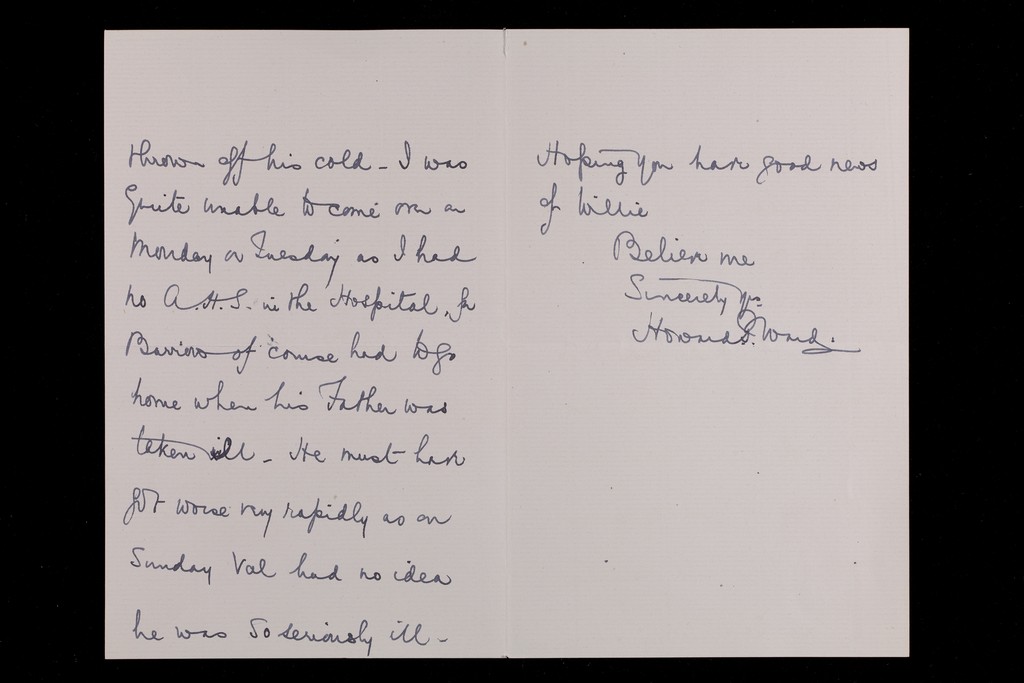 thrown off his cold - I was
quite unable to come over on
Monday or Tuesday as I had
no A.H.S. in the Hospital, for
Barrow of course had to go
home when his Father was
taken ill - He must have
got worse very rapidly as on
Sunday Val had no idea
he was so seriously ill -
Hoping you have good news
of Willie
Believe me
Sincerely yrs
Howard F. Ward.